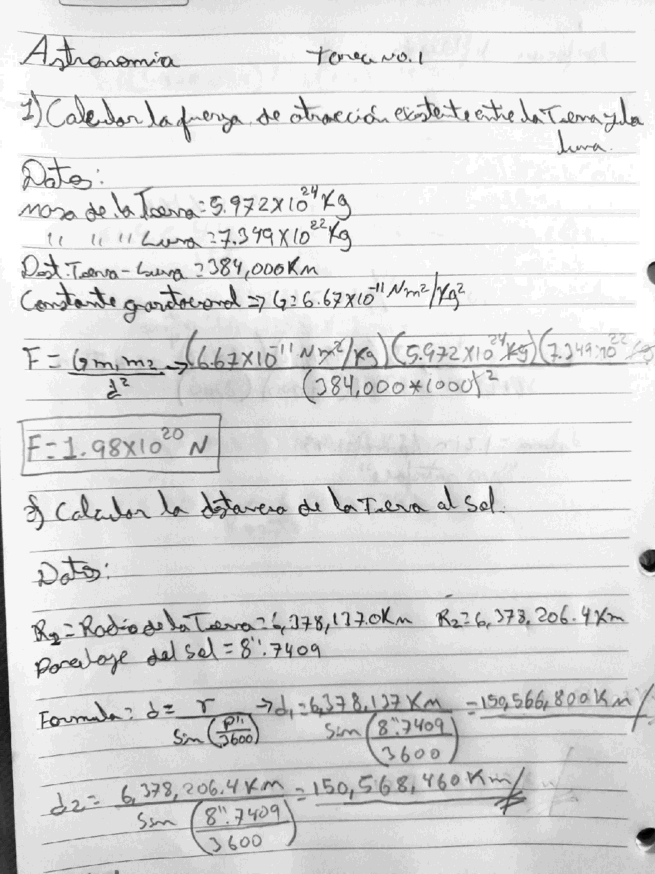 Astronomia Tarea No. 1
1) Calcular la fuerza de atracción existente entre la Tierra y la
Luna.
Datos:
masa de la Tierra = 5.972 X 10^24 Kg
" " " Luna = 7.349 X 10^22 Kg
Dist. Tierra - Luna = 384,000 Km
Constante gravitacional => G = 6.67 X 10^-11 Nm²/Kg²
F = G m₁ m₂ / d² → (6.67 X 10^-11 Nm²/Kg) (5.972 X 10^24 Kg) (7.349 · 10^22 Kg) / (384,000 * 1000)²
F = 1.98 X 10^20 N
3) Calcular la distancia de la Tierra al Sol.
Datos:
R₁ = Radio de la Tierra = 6,378,137.0 Km R₂ = 6,378,206.4 Km
paralaje del Sol = 8".7409
Formula: d = r / Sin (P"/3600) → d₁ = 6,378,137 Km / Sin (8".7409 / 3600) = 150,566,800 Km
d₂ = 6,378,206.4 Km / Sin (8".7409 / 3600) = 150,568,460 Km